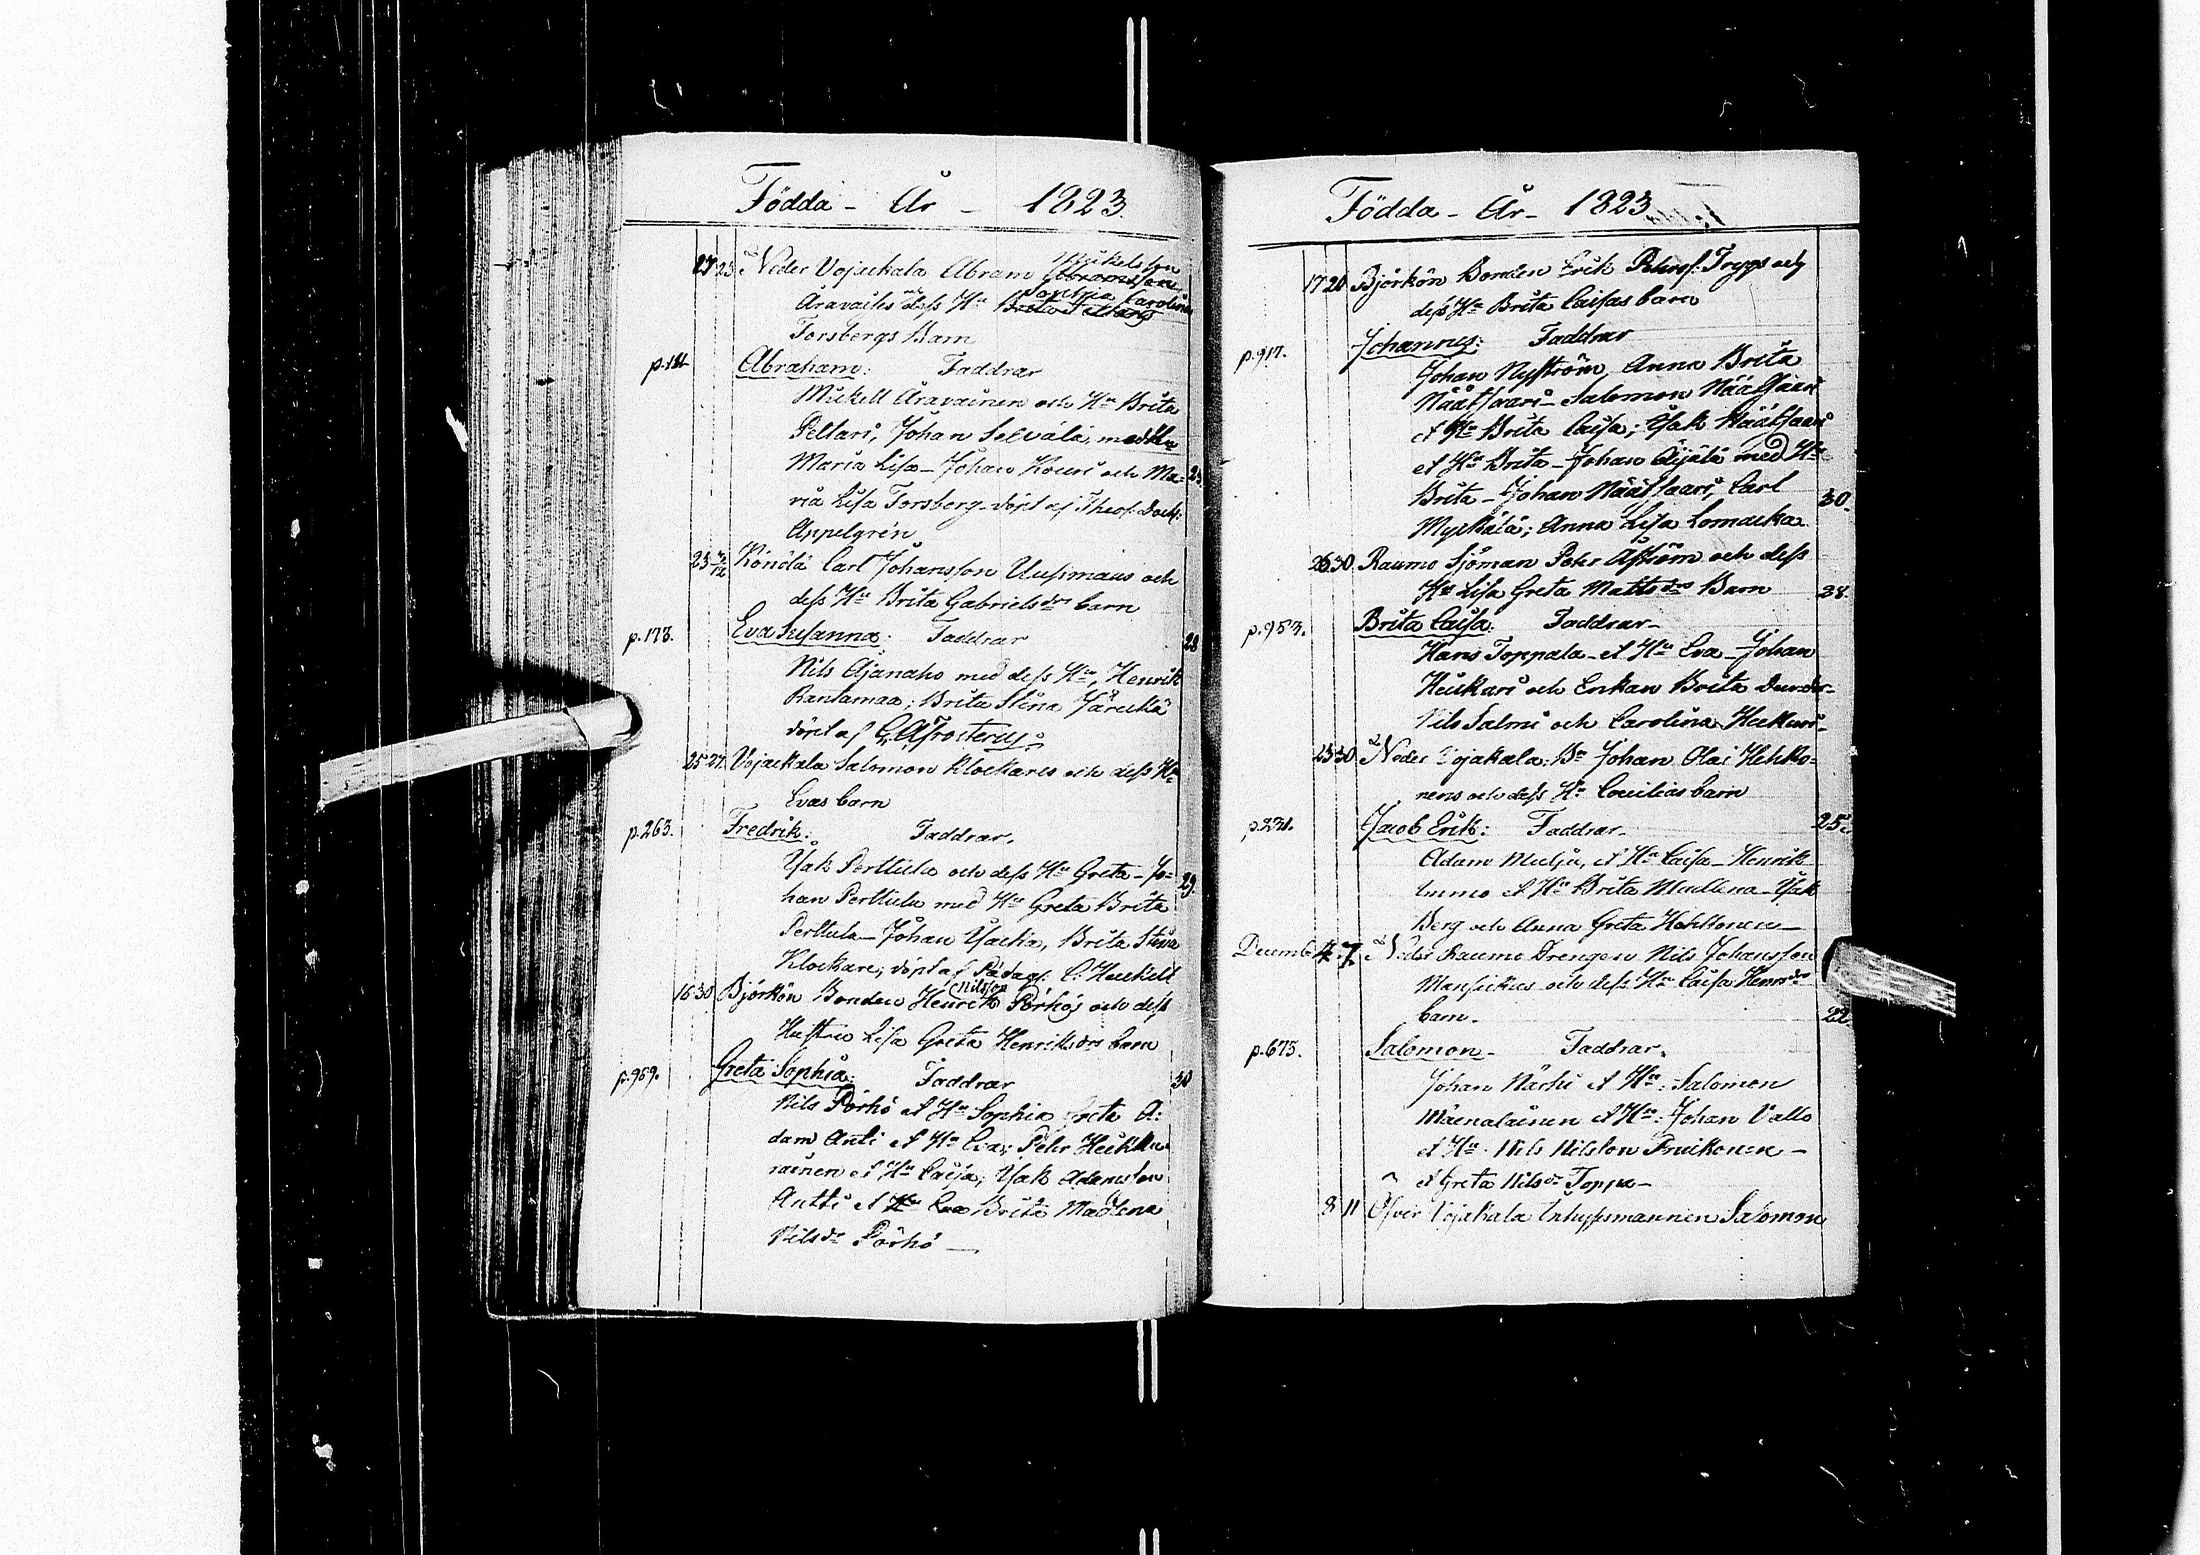 Födda - År - 1823.
27 23 Neder Vojackala Abram Mickelsson Abramsson
Aravaihs och dess Hu Sophia Carolina Brita Pellaris
Forsbergs Barn
p.121. Abraham: Faddrar
Mickell Aravainen och Hu Brita
Pellari, Johan Selvälä, med Hu
Maria Lisa - Johan Kouri och Ma= 23
ria Lisa Forsberg - döpt af Theol. Doct:
Appelgrén
23 3/12 Könölä Carl Johansson Uusimaas och
dess Hu Brita Gabrielsdrs barn
p.178. Eva Susanna: Faddrar 28
Nils Ajanaho med dess Hu, Henrik
Rantamaa; Brita Stina
döpt af G. A. Frosterus:
25 27. Vojackala Salomon Klockares och dess Hu
Evas barn
p.263. Fredrik: Faddrar.
Isak Perttula och dess Hu Greta - Jo= 29.
han Perttula med Hu Greta Brita
Perttula - Johan Isacka, Brita Stina
Klockare; döpt af Pädag. C. Heickell
16 30 Björkön Bonden Henrik Nilsson Pörhös och dess
Hustru Lisa Greta Henriksdrs barn
p.959. Greta Sophia: Faddrar 30
Nils Pörhö et Hu Sophia Greta A:
dam Anti et Hu Eva; Petr Heikku=
rainen et Hu Caisa; Isak Adamsson
Antti et Hu Eva Brita Madlena
Nilsdr Pörhö —
Födda - År - 1823
17 20 Björkön Bonden Erik Petersf: Tryggs och
dess Hu Brita Caisas barn
p.917. Johannes: Faddrar
Johan Nyström, Anna Brita
Näätsaari - Salomon Näätsaari
et Hu Brita Caisa; Isak Näätsaari
et Hu Brita - Johan Äijälä med Hu
Brita - Johan Näätsaari, Carl 30.
Myckälä; Anna Lisa Lomacka
26 30. Raumo Sjöman Petr Åström och dess
Hu Lisa Greta Mattsdrs Barn 28.
p.953. Brita Caisa: Faddrar -
Hans Toppala - et Hu Eva - Johan
Heickari och Enkan Brita Dunder-
Nils Salmi och Carolina Heickari -
23 30 Neder Vojakala: Bn Johan Olai Hehko=
nens och dess Hu Cecilias barn
p.221. Jacob Erik: Faddrar - 25.
Adam Mulju, et Hu Caisa - Henrik
Immo et Hu Brita Mullena - Isak
Berg och Anna Greta Hehkonen -
Decemb. 4. 7. Neder Raumo Drengen Nils Johansson
Mansickas och dess Hu Caisa Henrsdrs
barn. 22
p.675. Salomon - Faddrar.
Johan Närhi et Hu: Salomon
Mäenalainen et Hu: Johan Vallo
et Hu. Nils Nilsson Pruikonen -
et Greta Nilsdr Toppa -
8 11 Öfver Vojakala Inhysesmannen Salomon